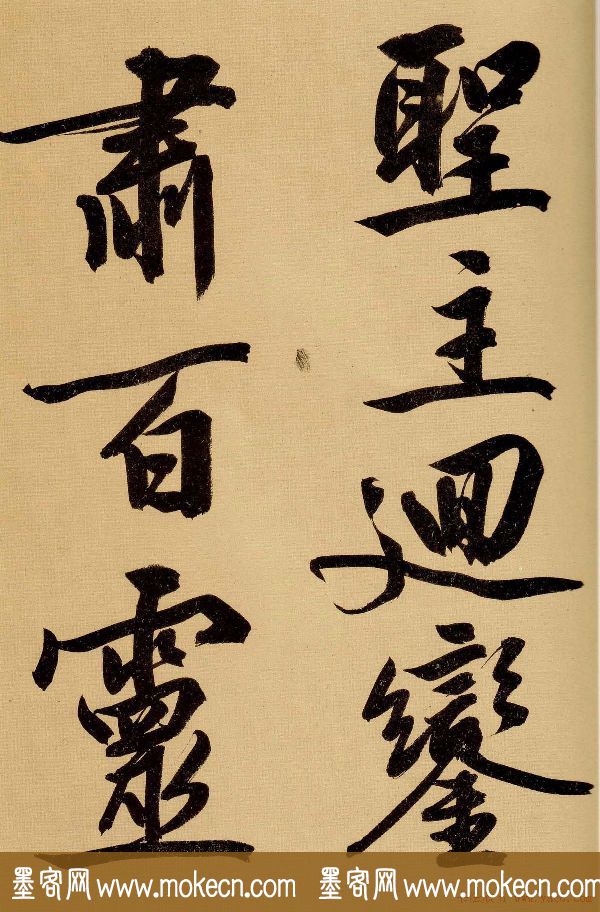 聖主迴鑾
肅百靈
墨客网 www.mokecn.com 墨客网 www.mokecn.com